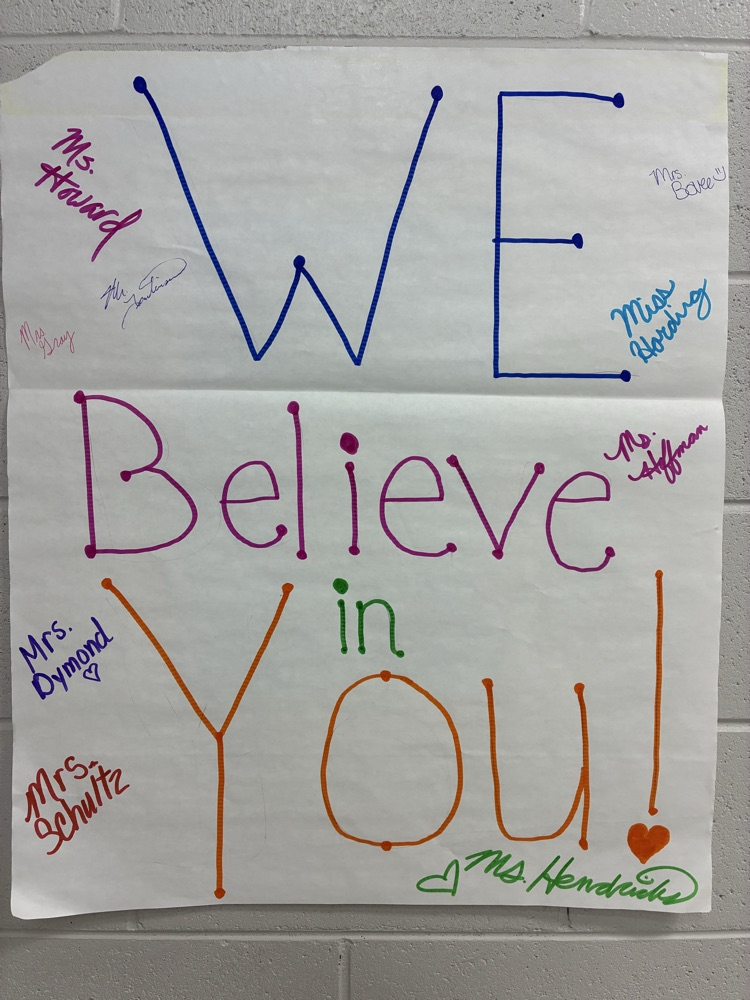 WE
Ms.
Howard
Mrs
Bovee
Mr.
Mrs
Gray
Miss
Harding
Believe
Ms.
Hoffman
in
You!
Mrs.
Dymond
Mrs.
Schultz
Ms. Hendricks